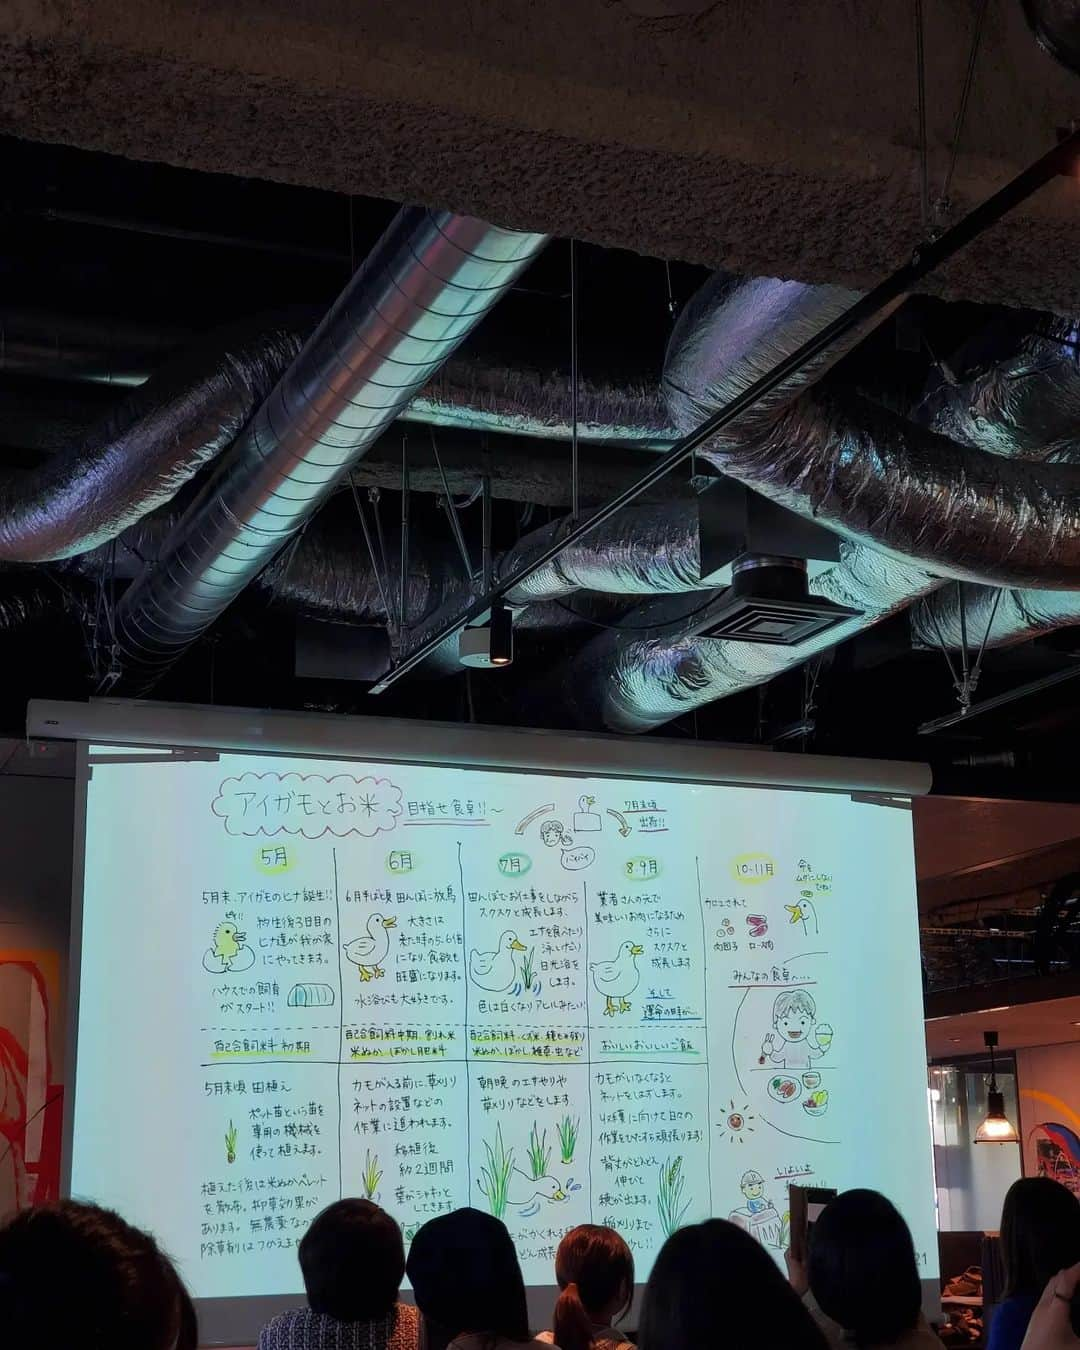 アイガモとお米
～目指せ食卓!!～
7月末頃
出荷!!
バイバイ
5月
6月
7月
8.9月
10~11月
5月末、アイガモのヒナ誕生!!
孵化後3日目の
ヒナ達が我が家
にやってきます。
ハウスでの飼育
がスタート!!
配合飼料 初期
6月半ば頃 田んぼに放鳥
大きさは
来た時の5、6倍
になり、食欲も
旺盛になります。
水浴びも大好きです。
配合飼料 中期、割れ米
米ぬか、ぼかし肥料
田んぼでお仕事をしながら
スクスクと成長します。
エサを食べたり
泳いだり
日光浴を
します。
色は白くなりアヒルみたい!!
配合飼料・くず米・種もみ残り
米ぬか、ぼかし、雑草・虫など
業者さんの元で
美味しいお肉になるため
さらに
スクスクと
成長します
そして
運命の時が…
おいしいおいしいご飯
加工されて
肉団子
ロース肉
命を
ムダにしない
でね!
みんなの食卓へ….
5月末頃 田植え
ポット苗という苗を
専用の機械を
使って植えます。
植えた後は米ぬかペレット
を散布。抑草効果が
あります。無農薬なの
除草剤はつかえま
カモが入る前に、草刈り
ネットの設置などの
作業に追われます。
稲植後
約2週間
葉がシャキッと
してきます。
朝晩のエサやりや
草刈りなどをします
がかくれる
どん成長
カモがいなくなると
ネットをはずします。
収穫に向けて日々の
作業をひたすら頑張ります!
背丈がどんどん
伸びて
穂が出ます。
稲刈りまで
少し!!
いよいよ
21